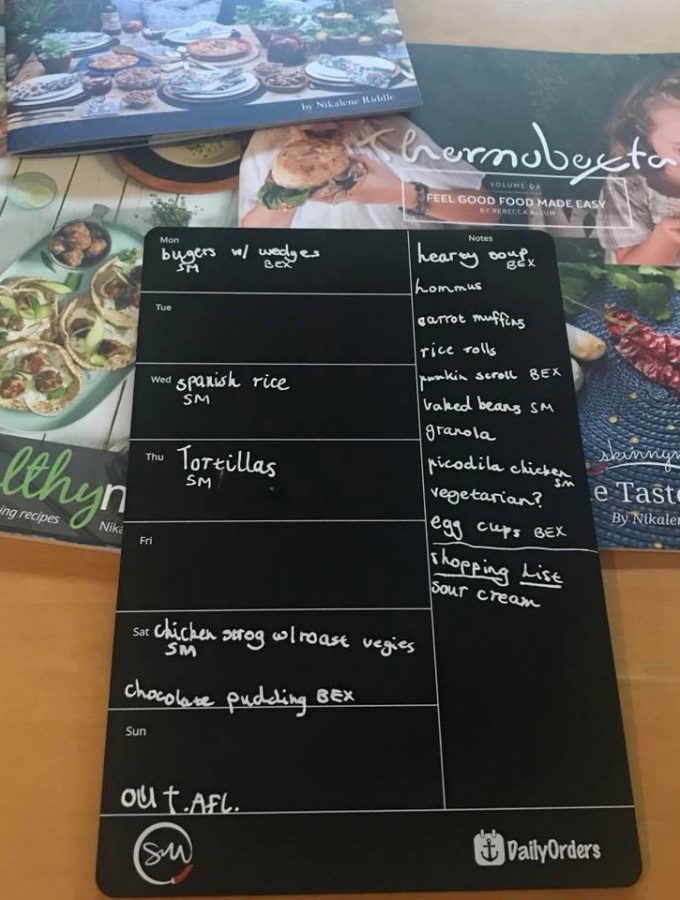 by Nikalene Riddle
thermobexta
VOLUME 03
FEEL GOOD FOOD MADE EASY
BY REBECCA ALLUM
Mon
bugers w/ wedges
SM BEX
Tue
Wed spanish rice
SM
Thu Tortillas
SM
Fri
Sat chicken strog w/ roast vegies
SM
chocolate pudding BEX
Sun
out. AFL.
Notes
hearty soup
BEX
hommus
carrot muffins
rice rolls
pumkin scroll BEX
baked beans SM
granola
picodila chicken
SM
vegetarian?
egg cups BEX
shopping list
sour cream
SM
DailyOrders
lthy
ing recipes
Nika
skinnym
e Taste
By Nikalen